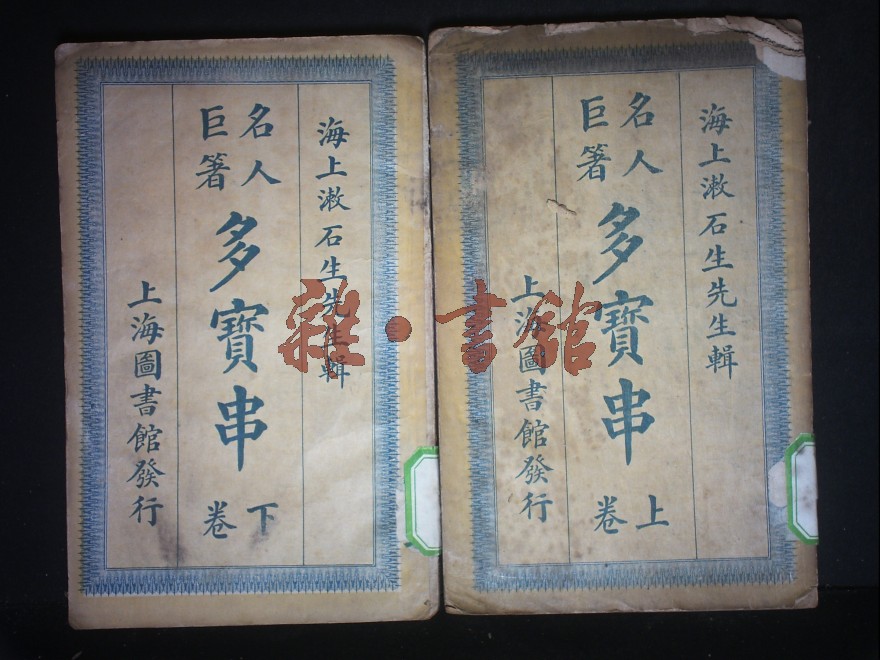 海上漱石生先生輯
名人
巨箸
多寶串
上卷
上海圖書館發行
海上漱石生先生輯
名人
巨箸
多寶串
下卷
上海圖書館發行
雜·書館